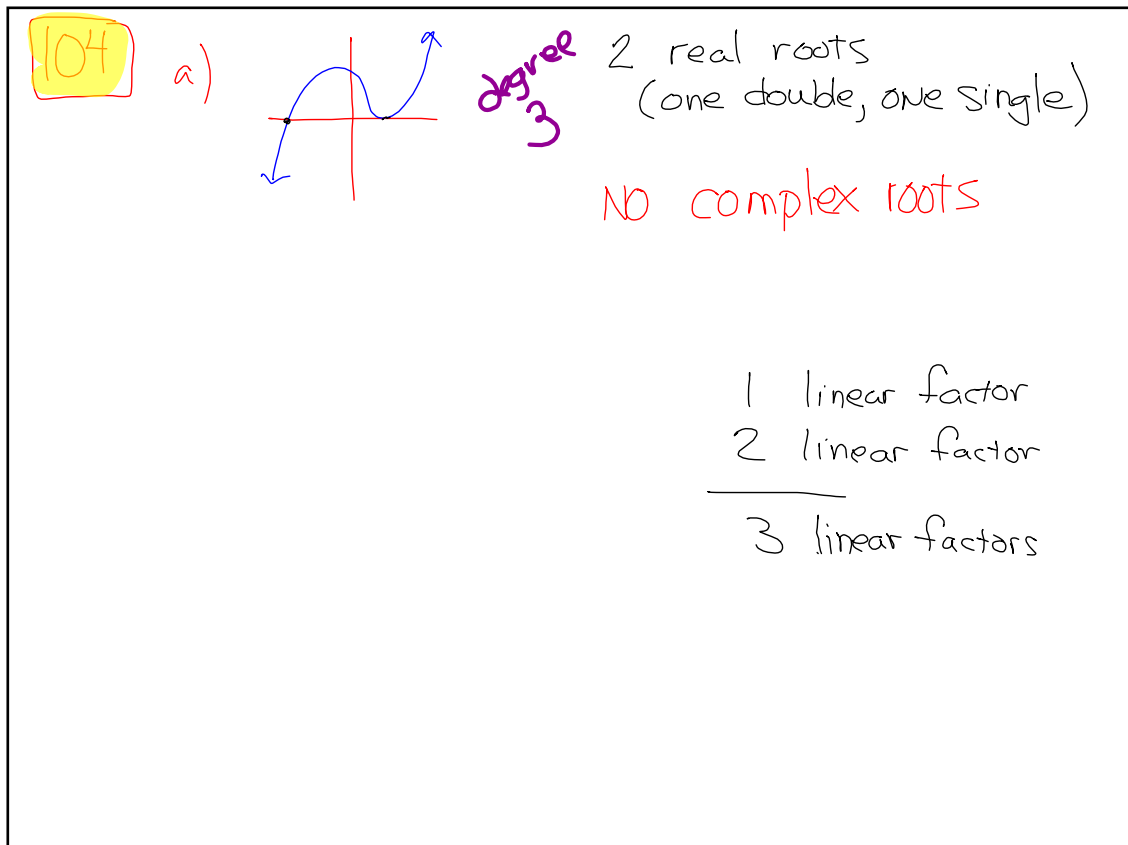 104
a)
degree
3
2 real roots
(one double, one single)
NO complex roots
1 linear factor
2 linear factor
3 linear factors